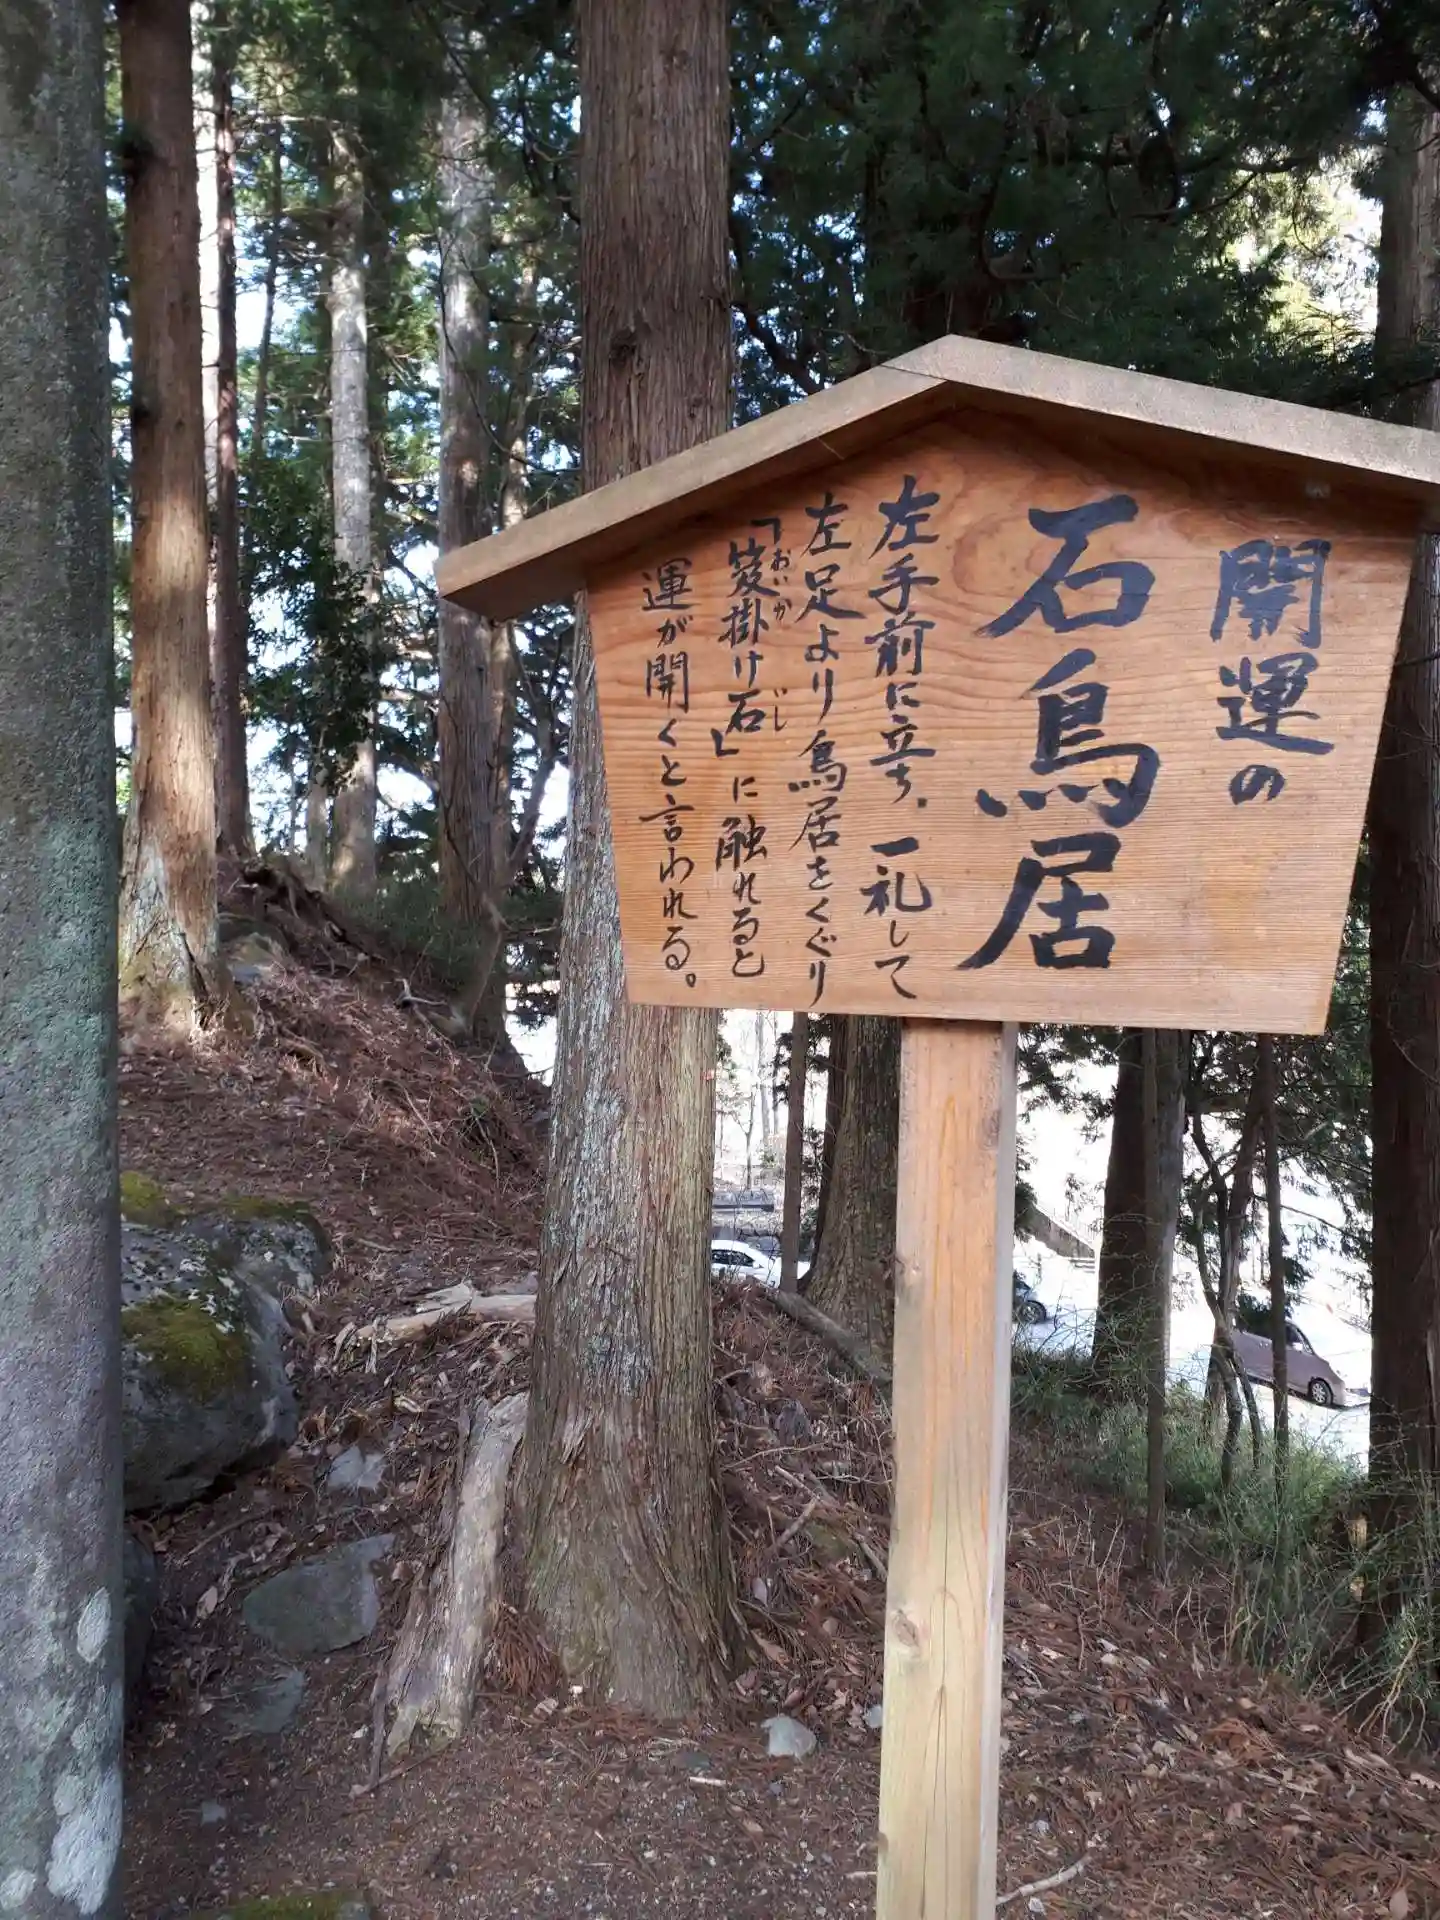 開運の
石鳥居
左手前に立ち、一礼して
左足より鳥居をくぐり
「笈掛け石」に触れると
おいか
じし
運が開くと言われる。